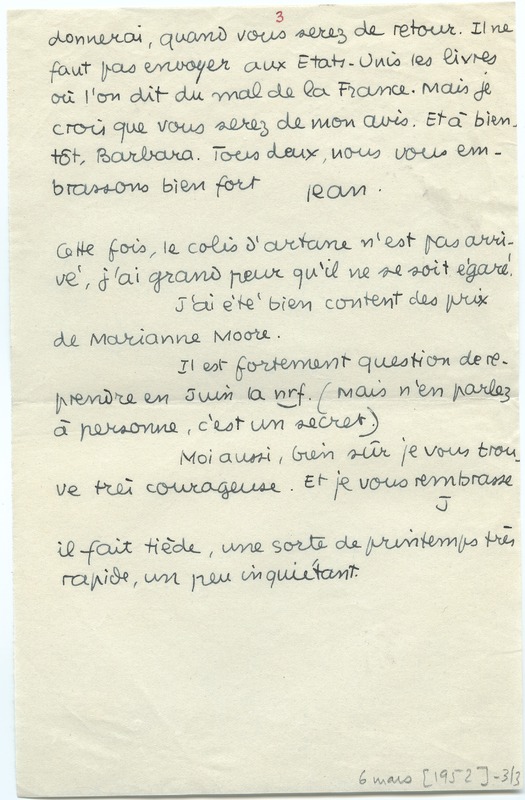 3
donnerai, quand vous serez de retour. Il ne
faut pas envoyer aux Etats-Unis les livres
où l'on dit du mal de la France. Mais je
crois que vous serez de mon avis. Et à bien-
tôt, Barbara. Tous deux, nous vous em-
brassons bien fort Jean.
Cette fois, le colis d'artane n'est pas arri-
vé, j'ai grand peur qu'il ne se soit égaré.
J'ai été bien content des prix
de Marianne Moore.
Il est fortement question de re-
prendre en Juin la nrf. (Mais n'en parlez
à personne, c'est un secret.)
Moi aussi, bien sûr je vous trou-
ve très courageuse. Et je vous rembrasse
J
il fait tiède, une sorte de printemps très
rapide, un peu inquiétant.
6 mars [1952] - 3/3